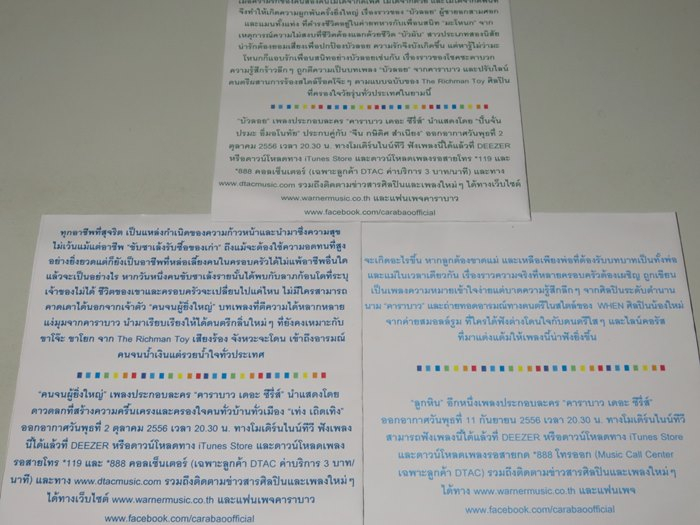 จึงทำให้เกิดความผูกพันครั้งยิ่งใหญ่ เรื่องราวของ "บัวลอย" ผู้ชายอกสามศอก
และแมนทั้งแท่ง ที่ดำรงชีวิตอยู่ในค่ายทหารกับเพื่อนสนิท "มะโหนก" จาก
เหตุการณ์ความไม่สงบที่ชีวิตต้องแลกด้วยชีวิต "บัวผัน" สาวประเภทสองนิสัย
น่ารักต้องยอมเสี่ยงเพื่อปกป้องบัวลอย ความรักจึงบังเกิดขึ้น แต่หารู้ไม่ว่ามะ
โหนกก็แอบรักเพื่อนสนิทอย่างบัวลอยเช่นกัน เรื่องราวของโชคชะตาบวก
ความรู้สึกร้าวลึกๆ ถูกตีความเป็นบทเพลง "บัวลอย" จากคาราบาว และปรับไลน์
ดนตรีผสานการร้องสไตล์ร็อคโจ๊ะๆ ตามแบบฉบับของ The Richman Toy ศิลปิน
ที่ครองใจวัยรุ่นทั่วประเทศในยามนี้
"บัวลอย" เพลงประกอบละคร "คาราบาว เดอะ ซีรี่ส์" นำแสดงโดย "ปั้นจั่น
ปรมะ อิ่มอโนทัย" ประกบคู่กับ "จีน กษิดิศ สำเนียง" ออกอากาศวันพุธที่ 2
ตุลาคม 2556 เวลา 20.30 น. ทางโมเดิร์นไนน์ทีวี ฟังเพลงนี้ได้แล้วที่ DEEZER
หรือดาวน์โหลดทาง iTunes Store และดาวน์โหลดเพลงรอสายโทร *119 และ
*888 คอลเซ็นเตอร์ (เฉพาะลูกค้า DTAC ค่าบริการ 3 บาท/นาที) และทาง
www.dtacmusic.com รวมถึงติดตามข่าวสารศิลปินและเพลงใหม่ๆ ได้ทางเว็บไซต์
www.warnermusic.co.th และแฟนเพจคาราบาว
www.facebook.com/carabaoofficial
ทุกอาชีพที่สุจริต เป็นแหล่งกำเนิดของความก้าวหน้าและนำมาซึ่งความสุข
ไม่เว้นแม้แต่อาชีพ "ขับซาเล้งรับซื้อของเก่า" ถึงแม้จะต้องใช้ความอดทนที่สูง
อย่างยิ่งยวดแต่ก็ยังเป็นอาชีพที่หล่อเลี้ยงคนในครอบครัวได้ไม่แพ้อาชีพอื่นใด
แล้วจะเป็นอย่างไร หากวันหนึ่งคนขับซาเล้งรายนั้นได้พบกับลาภก้อนโตที่ระบุ
เจ้าของไม่ได้ ชีวิตของเขาและครอบครัวจะเปลี่ยนไปแค่ไหน ไม่มีใครสามารถ
คาดเดาได้นอกจากเจ้าตัว "คนจนผู้ยิ่งใหญ่" บทเพลงที่ตีความได้หลากหลาย
แง่มุมจากคาราบาว นำมาเรียบเรียงให้ได้ดนตรีกลิ่นใหม่ๆ ที่ยังคงเหมาะกับ
ขาโจ๊ะ ขาโยก จาก The Richman Toy เสียงร้อง จังหวะจะโคน เข้าถึงอารมณ์
คนจนน้ำเงินแต่รวยน้ำใจทั่วประเทศ
"คนจนผู้ยิ่งใหญ่" เพลงประกอบละคร "คาราบาว เดอะ ซีรี่ส์" นำแสดงโดย
ดาวตลกที่สร้างความครื้นเครงและครองใจคนทั่วบ้านทั่วเมือง "เท่ง เถิดเทิง"
ออกอากาศวันพุธที่ 2 ตุลาคม 2556 เวลา 20.30 น. ทางโมเดิร์นไนน์ทีวี ฟังเพลง
นี้ได้แล้วที่ DEEZER หรือดาวน์โหลดทาง iTunes Store และดาวน์โหลดเพลง
รอสายโทร *119 และ *888 คอลเซ็นเตอร์ (เฉพาะลูกค้า DTAC ค่าบริการ 3 บาท/
นาที) และทาง www.dtacmusic.com รวมถึงติดตามข่าวสารศิลปินและเพลงใหม่ๆ
ได้ทางเว็บไซต์ www.warnermusic.co.th และแฟนเพจคาราบาว
www.facebook.com/carabaoofficial
จะเกิดอะไรขึ้น หากลูกต้องขาดแม่ และเหลือเพียงพ่อที่ต้องรับบทบาทเป็นทั้งพ่อ
และแม่ในเวลาเดียวกัน เรื่องราวความจริงที่หลายครอบครัวต้องเผชิญ ถูกเขียน
เป็นเพลงความหมายเข้าใจง่ายแต่บาดความรู้สึกลึกๆ จากศิลปินระดับตำนาน
นาม "คาราบาว" และถ่ายทอดอารมณ์ทางดนตรีในสไตล์ของ WHEN ศิลปินน้องใหม่
จากค่ายสมอลล์รูม ที่ใครได้ฟังต่างโดนใจกับดนตรีใสๆ และไลน์คอรัส
ที่มาแต่งแต้มให้เพลงนี้น่าฟังยิ่งขึ้น
"ลูกหิน" อีกหนึ่งเพลงประกอบละคร "คาราบาว เดอะ ซีรี่ส์"
ออกอากาศวันพุธที่ 11 กันยายน 2556 เวลา 20.30 น. ทางโมเดิร์นไนน์ทีวี
สามารถฟังเพลงนี้ได้แล้วที่ DEEZER หรือดาวน์โหลดทาง iTunes Store
และดาวน์โหลดเพลงรอสายกด *888 โทรออก (Music Call Center
เฉพาะลูกค้า DTAC) รวมถึงติดตามข่าวสารศิลปินและเพลงใหม่ๆ
ได้ทาง www.warnermusic.co.th และแฟนเพจ
www.facebook.com/carabaoofficial